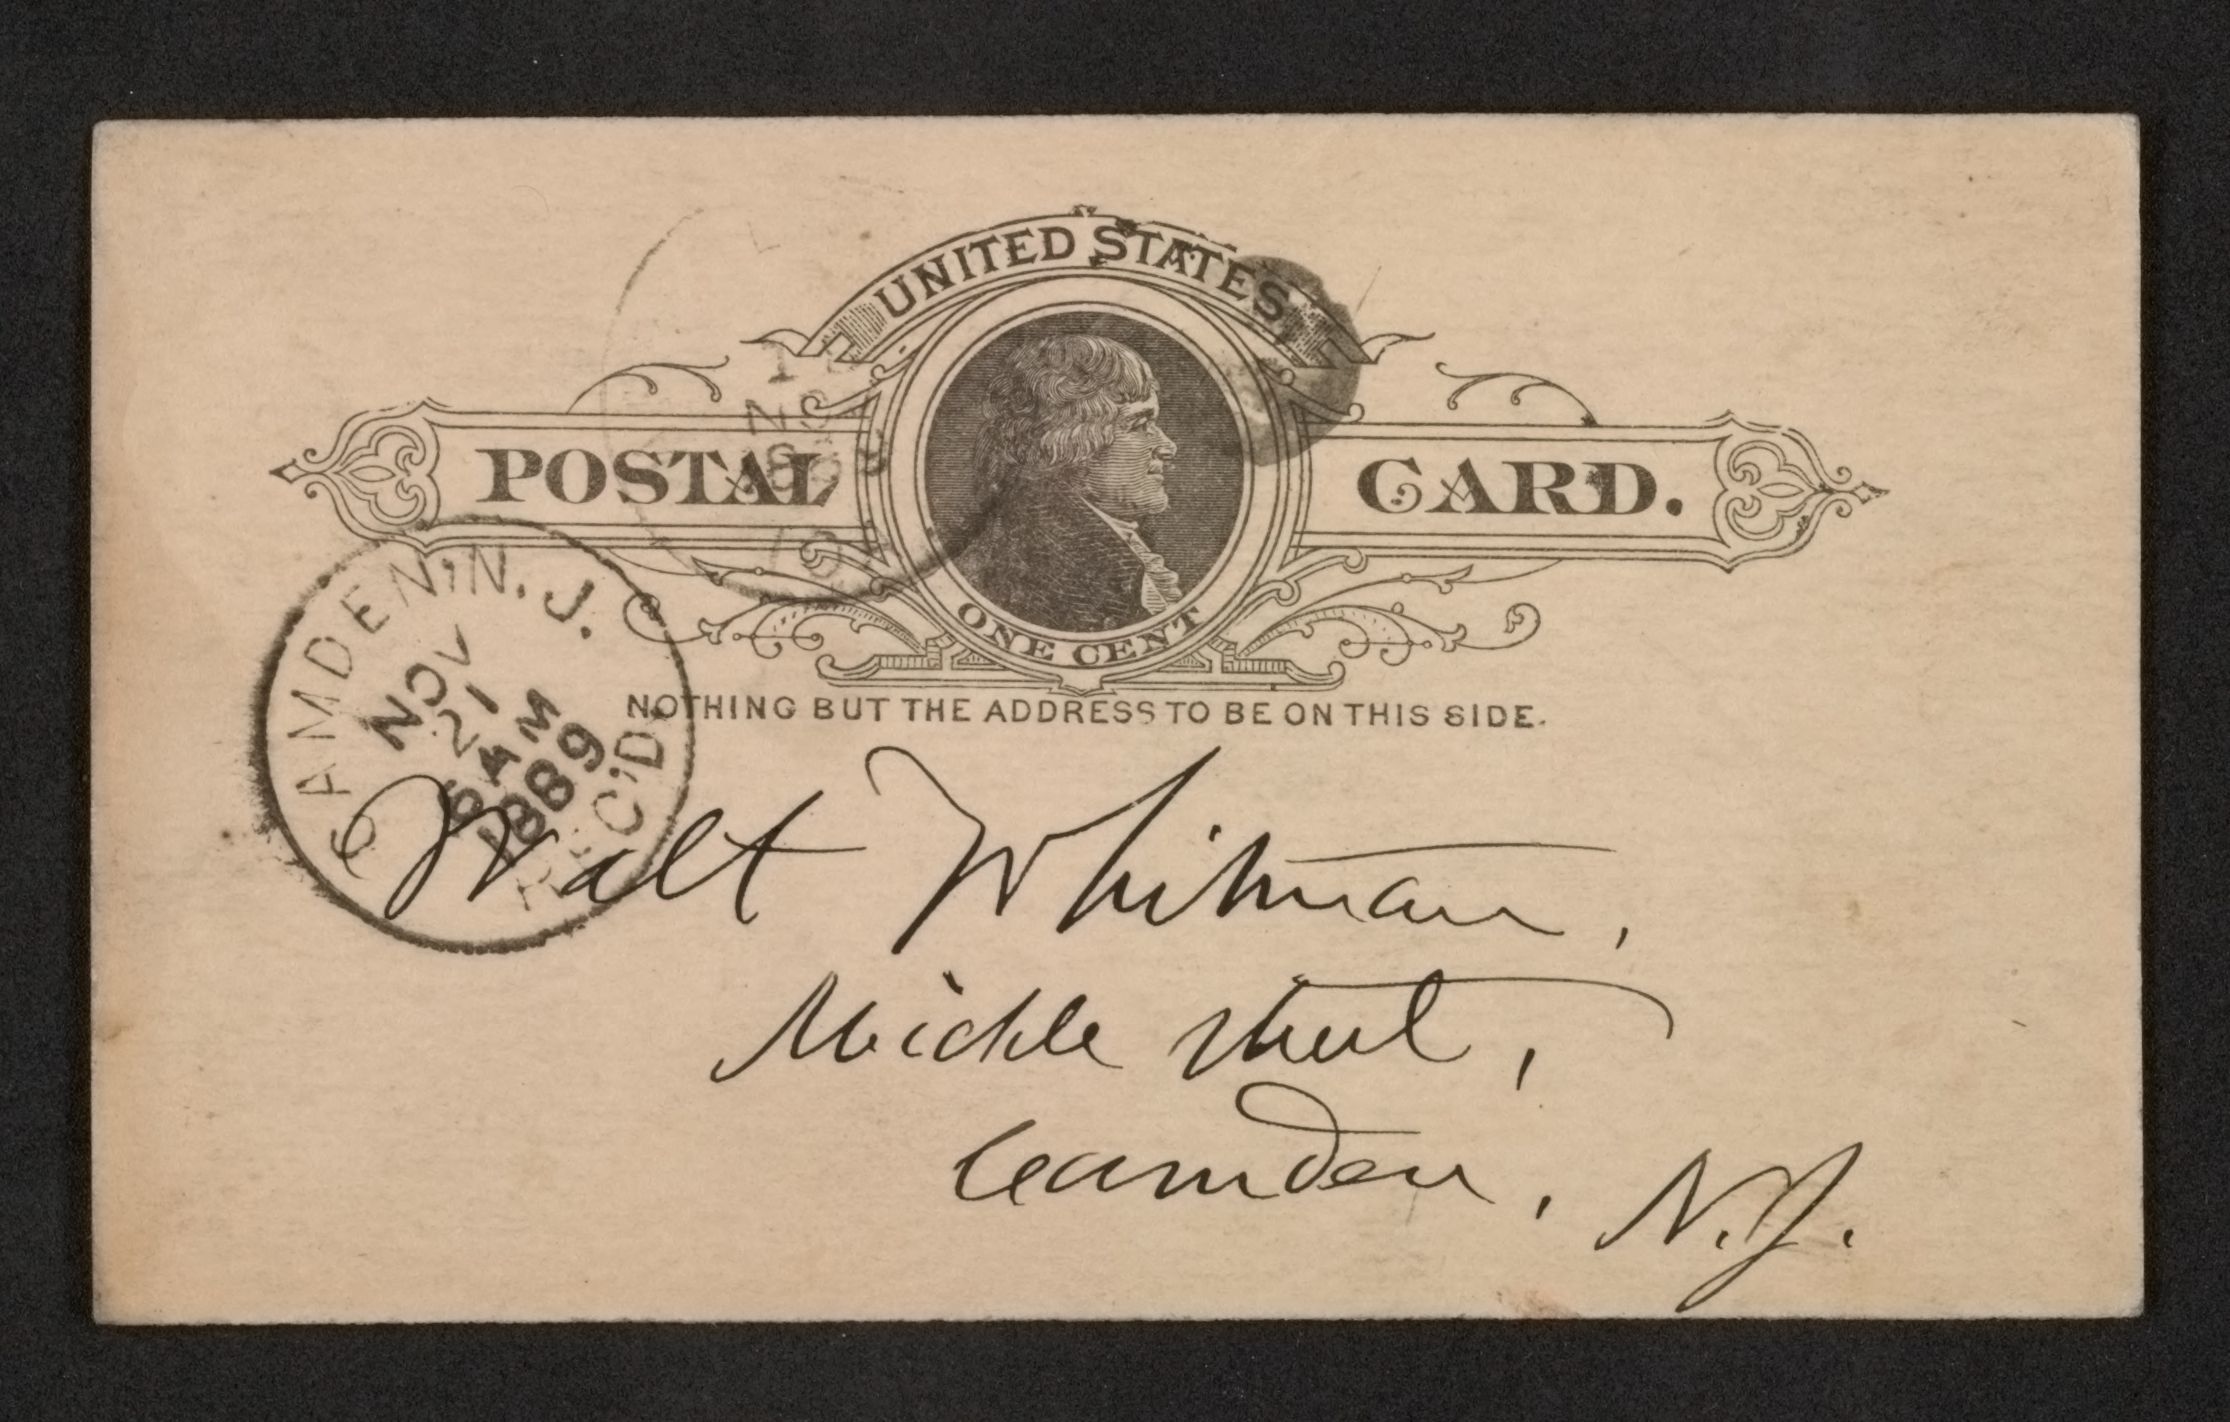 UNITED STATES
POSTAL CARD.
ONE CENT
NOTHING BUT THE ADDRESS TO BE ON THIS SIDE.
CAMDEN, N. J.
NOV
21
6 AM
1889
REC'D.
Walt Whitman,
Mickle street,
Camden, N.J.